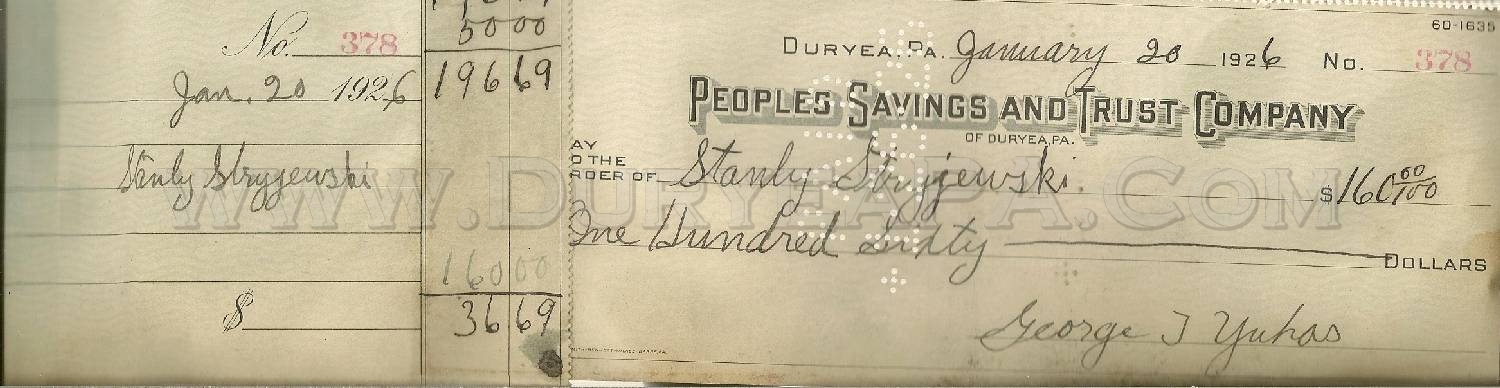 50 00
No. 378
196 69
Jan. 20 1926
Stanly Stryjewski
160 00
$
36 69
60-1635
DURYEA, PA. January 20 1926 No. 378
PEOPLES SAVINGS AND TRUST COMPANY
OF DURYEA, PA.
AY
O THE
RDER OF Stanly Stryjewski. $160 00/100
One Hundred Sixty DOLLARS
George J Yuhas
WWW.DURYEAPA.COM